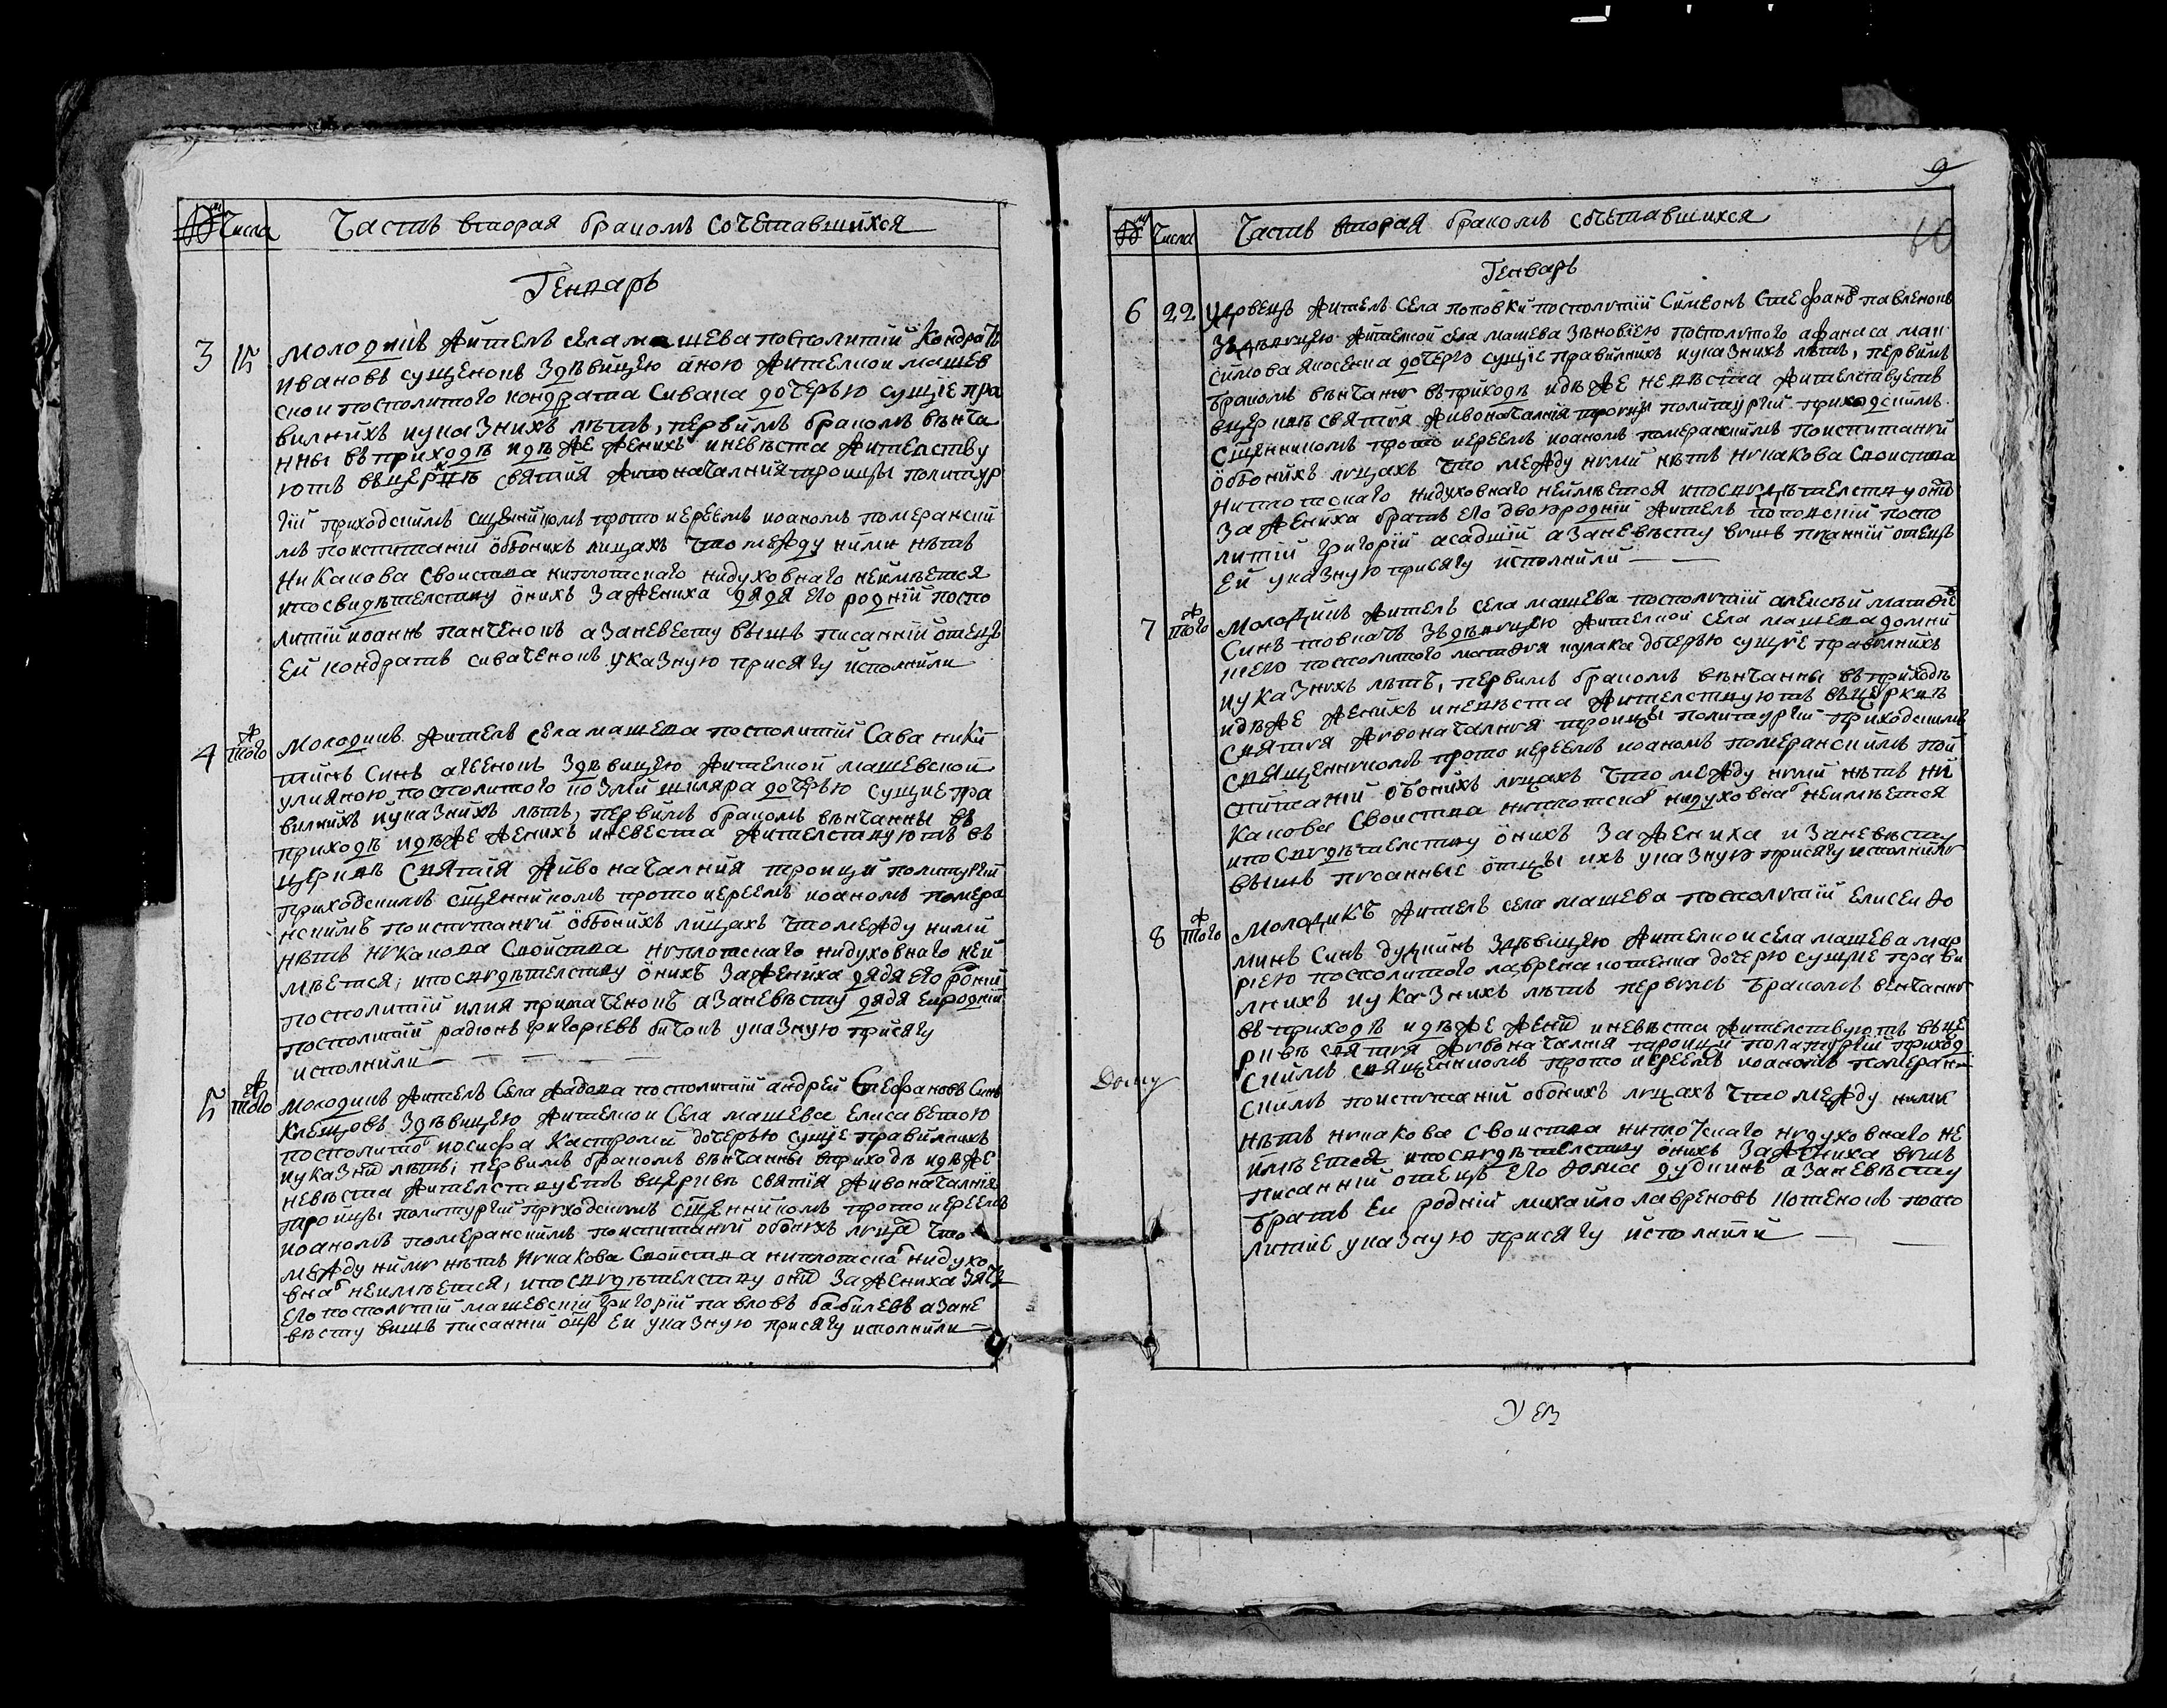 № Числа Часть вторая бракомъ сочетавшихся
Генварь
3 15 Молодикъ житель села машева посполитій Кондратъ
ивановъ сущенокъ здѣвицею аною жителкои машев
скои посполитого кондрата Сивака дочерью сущіе пра
вилнихъ иуказнихъ лѣтъ, первимъ бракомъ вѣнча
нны въприходѣ идѣже женихъ иневѣста жителству
ютъ въцерквѣ святия живоначалния троицы политур
гіи приходскимъ сщенникомъ протоиереемъ иоаномъ померански
мъ поиспитаніи обоихъ лицахъ что между ними нѣтъ
Никакова своиства ниплотскаго нидуховнаго неимѣется
ипосвидѣтелству онихъ Зажениха дядя его родній поспо
литій иоаннъ панченокъ азаневесту вышъ писанній отецъ
Еи кондратъ сиваченокъ указную присягу исполнили
4 того ж Молодикъ житель села машева посполитій Сава ники
тинъ синъ агѣенокъ Здѣвицею жителкой машевской
улияною посполитого козми шкляра дочерью сущие пра
вилнихъ иуказнихъ лѣтъ, первимъ бракомъ вѣнчанны въ
приходѣ идѣже женихъ иневеста жителствуютъ въ
церквѣ Святія живоначалния троици политургіи
приходскимъ сщенникомъ протоиереемъ иоаномъ помера
нскимъ поиспитаніи обоихъ лицахъ что между ними
нѣтъ никакова Своиства ниплотскаго нидуховнаго неи
мѣется; ипосвидѣтелству онихъ зажениха дядя его родній
посполитій илия примаченокъ азаневѣсту дядя еиродній
посполитій радіонъ григоріевъ битокъ указную присягу
исполнили
5 того ж Молодикъ житель Села жадова посполитій андрей Стефановъ Синъ
Клещовъ Здѣвицею жителкои Села машева Елисаветою
посполитого иосифа Кастроми дочерью сущіе правилнихъ
иуказних лѣтъ; первимъ бракомъ вѣнчанны вприходѣ идѣже
невѣста жителствуетъ вцерквѣ святія живоначалнія
троицы политургіи приходскимъ сщенникомъ протоиереемъ
иоаномъ померанскимъ поиспитаніи обоихъ лицах что
между ними нѣтъ Никакова Своиства ниплотскаго нидухо
внаго неимѣется, ипосвидѣтелству оних зажениха зять
его посполитій машевскій григорій павловъ бобилевъ азане
вѣсту вишъ писанній отецъ еи указную присягу исполнили
9
10
№ Числа Часть вторая бракомъ сочетавшихся
Генварь
6 22 Удовецъ житель села поповки посполитій Симеонъ Стефановъ павленокъ
Здѣвицею жителкой села машева Зѣновіею посполитого афанаса мак
симова яковенка дочерю сущіе правилнихъ иуказнихъ лѣтъ, первимъ
бракомъ вѣнчани въприходѣ идѣже невѣста жителствуетъ
вцерквѣ святія живоначалнія троицы политургіи приходскимъ
сщенникомъ протоиереемъ иоаномъ померанскимъ поиспитаніи
обоихъ лицахъ что между ними нѣтъ никакова своиства
ниплотскаго нидуховнаго неимѣется ипосвидѣтелству оних
зажениха братъ его двоюродній житель поповскій поспо
литій григорій асадшій азаневѣсту вишъ писанній отецъ
еи указную присягу исполнили
7 того ж Молодикъ житель села машева посполитій алексѣй матвѣе
Синъ товкачъ Здѣвицею жителкой села машева домни
кіею посполитого матвѣя кулака дочерью сущіе правилнихъ
иуказнихъ лѣтъ, первимъ бракомъ вѣнчанны въприходѣ
идѣже женихъ иневѣста жителствуютъ въцерквѣ
святія живоначалнія троицы политургіи приходскимъ
священникомъ протоиереемъ иоаномъ померанскимъ пои
спитаніи обоихъ лицахъ что между ними нѣтъ ни
какова Своиства ниплотскаго нидуховнаго неимѣется
ипосвидѣтелству онихъ Зажениха изаневѣсту
вышъ писанные отцы ихъ указную присягу исполнили
8 того ж Молодикъ житель села машева посполитій Елисеи Фо
минъ Синъ дудкинъ здѣвицею жителкои села машева мар
ріею посполитого лаврена котенка дочерю сущие прави
лнихъ иуказнихъ лѣтъ первимъ бракомъ венчанни
въприходѣ идѣже жених иневѣста жителствуютъ вце
рквѣ святія живоначалнія троици политургіи приход
Скимъ священникомъ протоиереемъ иоаномъ померан
скимъ поиспитаніи обоихъ лицахъ что между ними
нѣтъ никакова своиства ниплотскаго нидуховнаго не
имѣется ипосвидѣтелству онихъ Зажениха вишъ
писанній отецъ его Фома дудкинъ азаневѣсту
братъ еи родній михайло лавреновъ котенокъ поспо
литіе указную присягу исполнили